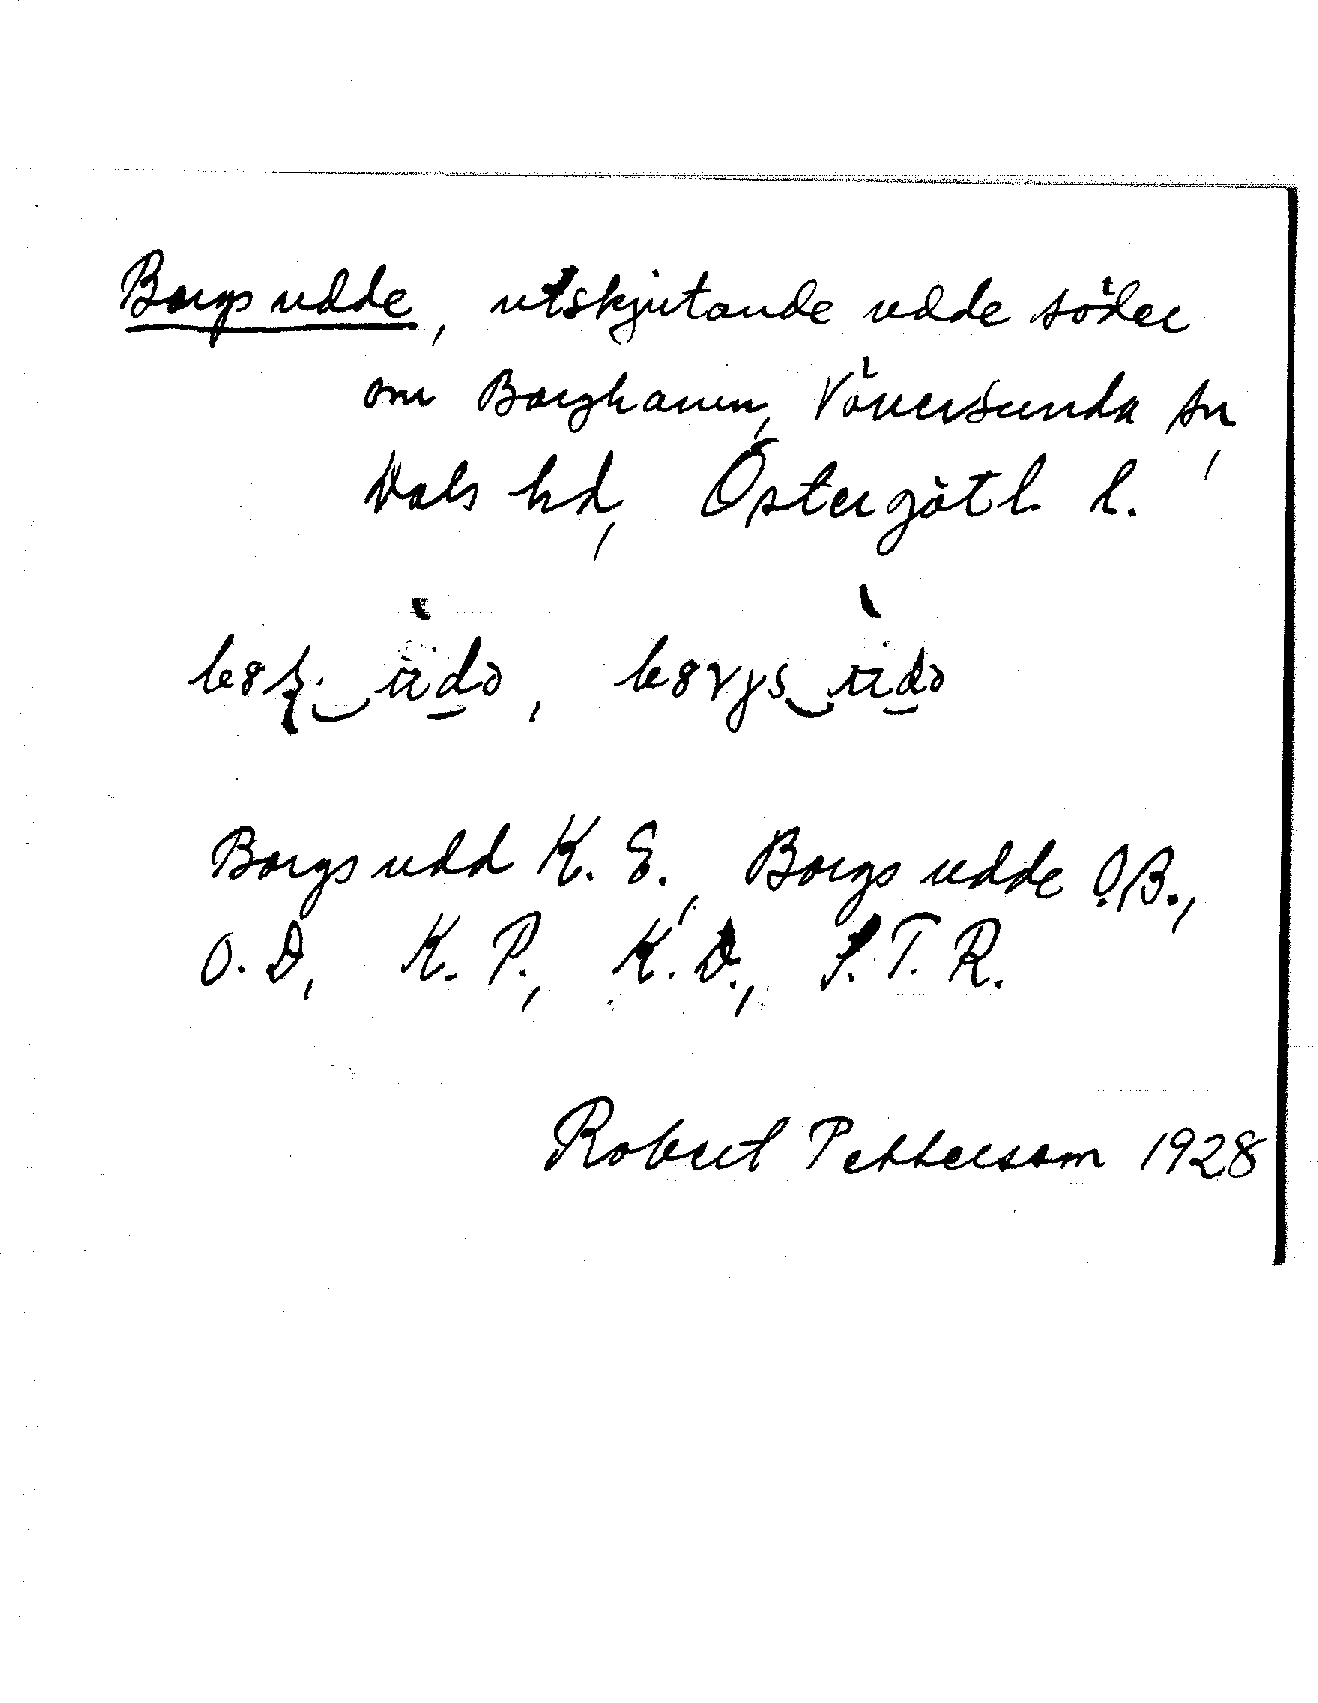 Borgs udde, utskjutande udde söder
om Borghamn, Väversunda sn,
Dals hd, Östergötl. l.
Borgs udd K. E., Borgs udde O.B.,
O.D., K. P., K.D., S.T.R.
Robert Pettersson 1928